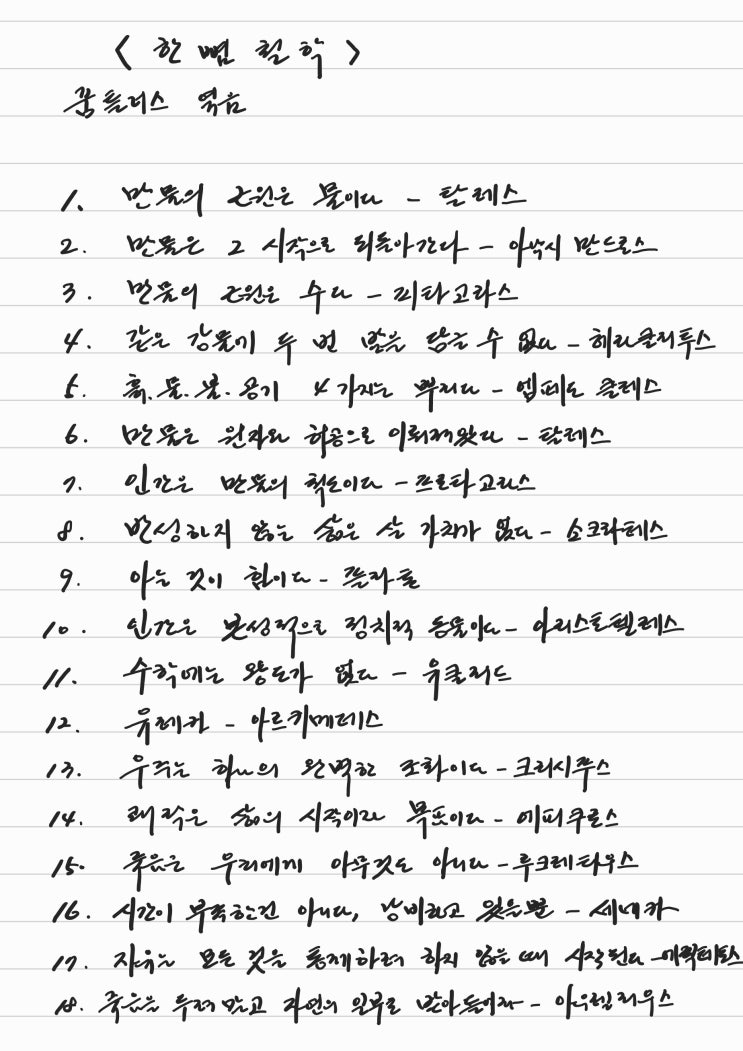 < 한 뼘 철학 >
꿈틀러스 엮음
1. 만물의 근원은 물이다 - 탈레스
2. 만물은 그 시작으로 되돌아간다 - 아낙시 만드로스
3. 만물의 근원은 수다 - 피타고라스
4. 같은 강물에 두 번 발을 담글 수 없다 - 헤라클리투스
5. 흙.물.불.공기 4 가지는 뿌리다 - 엠페도 클레스
6. 만물은 원자와 허공으로 이뤄져왔다 - 탈레스
7. 인간은 만물의 척도이다 - 프로타고라스
8. 반성하지 않는 삶은 살 가치가 없다 - 소크라테스
9. 아는 것이 힘이다 - 플라톤
10. 인간은 본성적으로 정치적 동물이다 - 아리스토텔레스
11. 수학에는 왕도가 없다 - 유클리드
12. 유레카 - 아르키메데스
13. 우주는 하나의 완벽한 조화이다 - 크리시푸스
14. 쾌락은 삶의 시작이자 목표이다 - 에피쿠로스
15. 죽음은 우리에게 아무것도 아니다 - 루크레티우스
16. 시간이 부족한건 아니다, 낭비하고 있을뿐 - 세네카
17. 자유는 모든 것을 통제하려 하지 않을 때 시작된다 - 에픽테토스
18. 죽음을 두려 말고 자연의 일부로 받아들이자 - 아우렐리우스